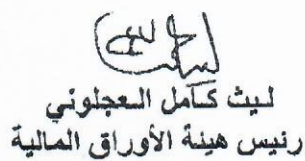 ليث كامل العجلوني
رئيس هيئة الأوراق المالية